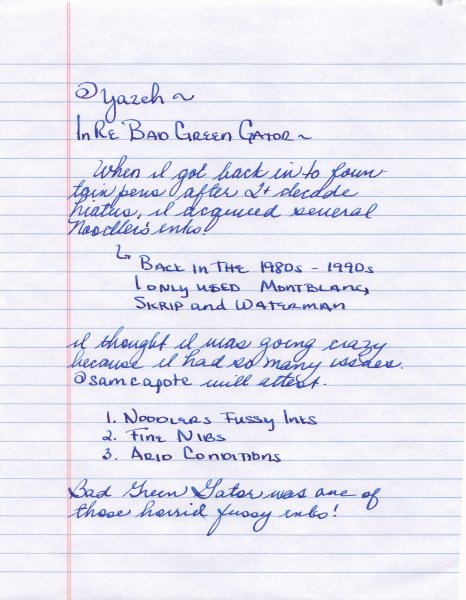 @yazeh ~
In Re Bad Green Gator ~
When I got back in to foun-
tain pens, after 2+ decade
hiatus, I acquired several
Noodler's inks
↳ Back in the 1980s - 1990s
I only used Montblanc,
Skrip and Waterman
I thought I was going crazy
because I had so many issues.
@samcapote will attest.
1. Noodlers Fussy Inks
2. Fine Nibs
3. Arid Conditions
Bad Green Gator was one of
those horrid fussy inks!